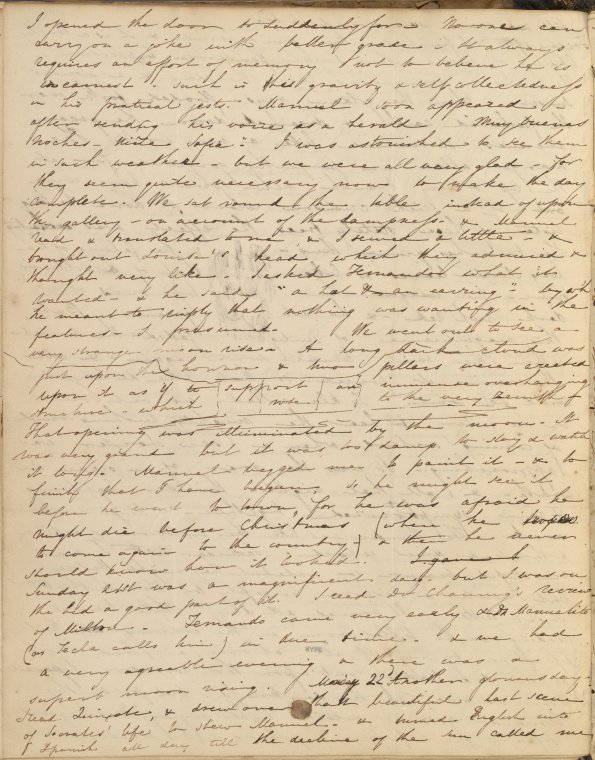 I opened the door so suddenly for. No one can
carry on a joke with better grace - It always
requires an effort of memory not to believe he is
in earnest. Such is his gravity & self collectedness
in his practical jests. Manuel soon appeared -
after sending his voice as a herald "Muy buenas
noches - niña Sofia" I was astonished to see them
in such weather - but we were all very glad - for
they seem quite necessary now to make the day
complete. We sat round the table instead of upon
the gallery - on account of the dampness - & Manuel
read & translated to me & I sewed a little - &
brought out Louisa's head which they admired &
thought very like I asked Fernando what it
wanted - & he said "a hat & an earring" by wh
he meant to imply that nothing was wanting in the
features - I presumed. We went out to see a
very strange moon rise - A long dark cloud was
just upon the horizon & two pillars were erected
upon it as if to support an immense overhanging
which to the very zenith
That opening was illuminated by the moon - It
was very grand but it was too damp to stay & watch
it long. Manuel begged me to paint it - & to
finish that I have begun so he might see it
before he went to town, for he was afraid he
might die before Christmas (where he hopes
to come again to the country) & then he never
should know how it looked.
Sunday 21st was a magnificent day - but I was on
the bed a good part of it. I read Dr Channing's review
of Milton - Fernando came very early & Dn Manuelito
(as Tecla calls him) in due time. & we had
a very agreeable evening & there was a
superb moon rising. May 22d Another glorious day -
I read Quixote, & drew over that beautiful last scene
of Socrates' life to shew Manuel - & turned English into
Spanish all day till the decline of the sun called me
NYPL